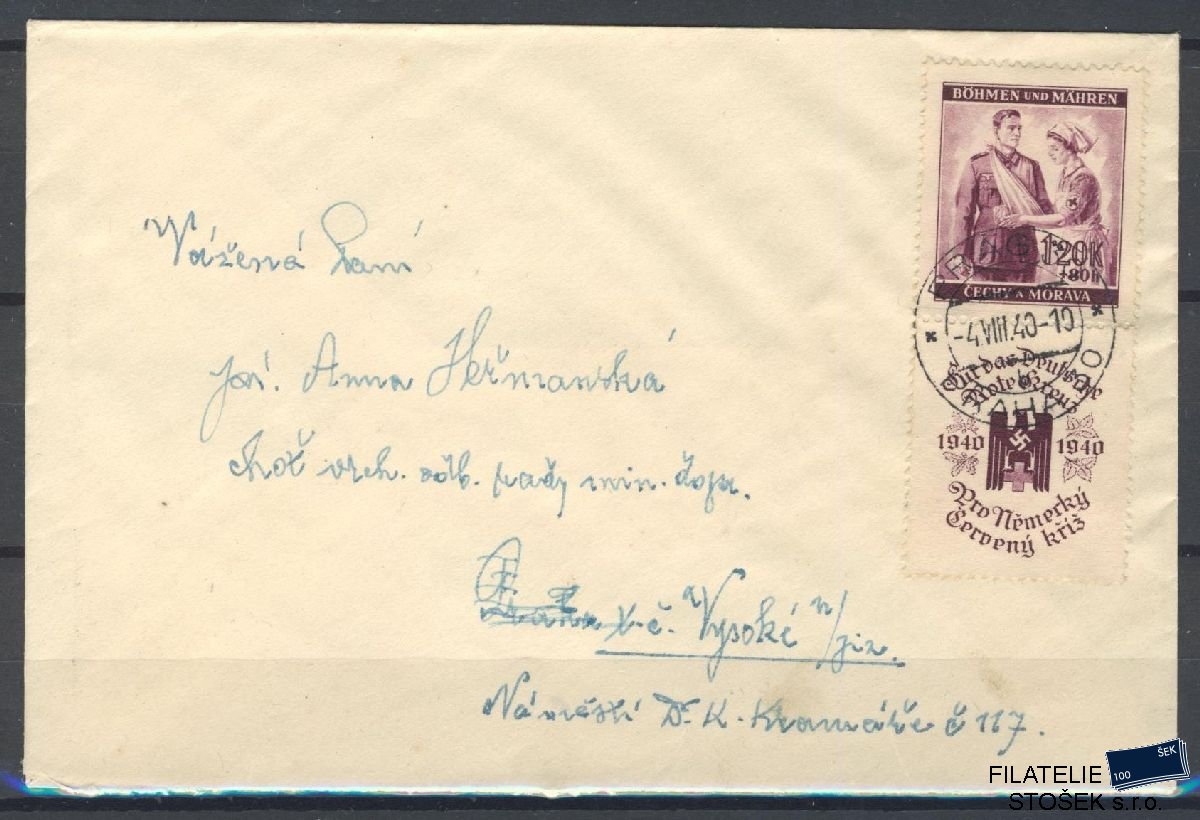 BÖHMEN UND MÄHREN
1·20K
+80h
ČECHY A MORAVA
PRAG
-4.VIII.40-10
PRAHA
Für das Deutsche
Rote Kreuz
1940 1940
Pro Německý
Červený kříž
Vážená Paní
paí. Anna Heřmanská
choť vrch. odb. rady min. dopr.
"Vysoké" n/Jiz.
Náměstí Dr. K. Kramáře č 117.
100 ŠEK
FILATELIE
STOŠEK s.r.o.